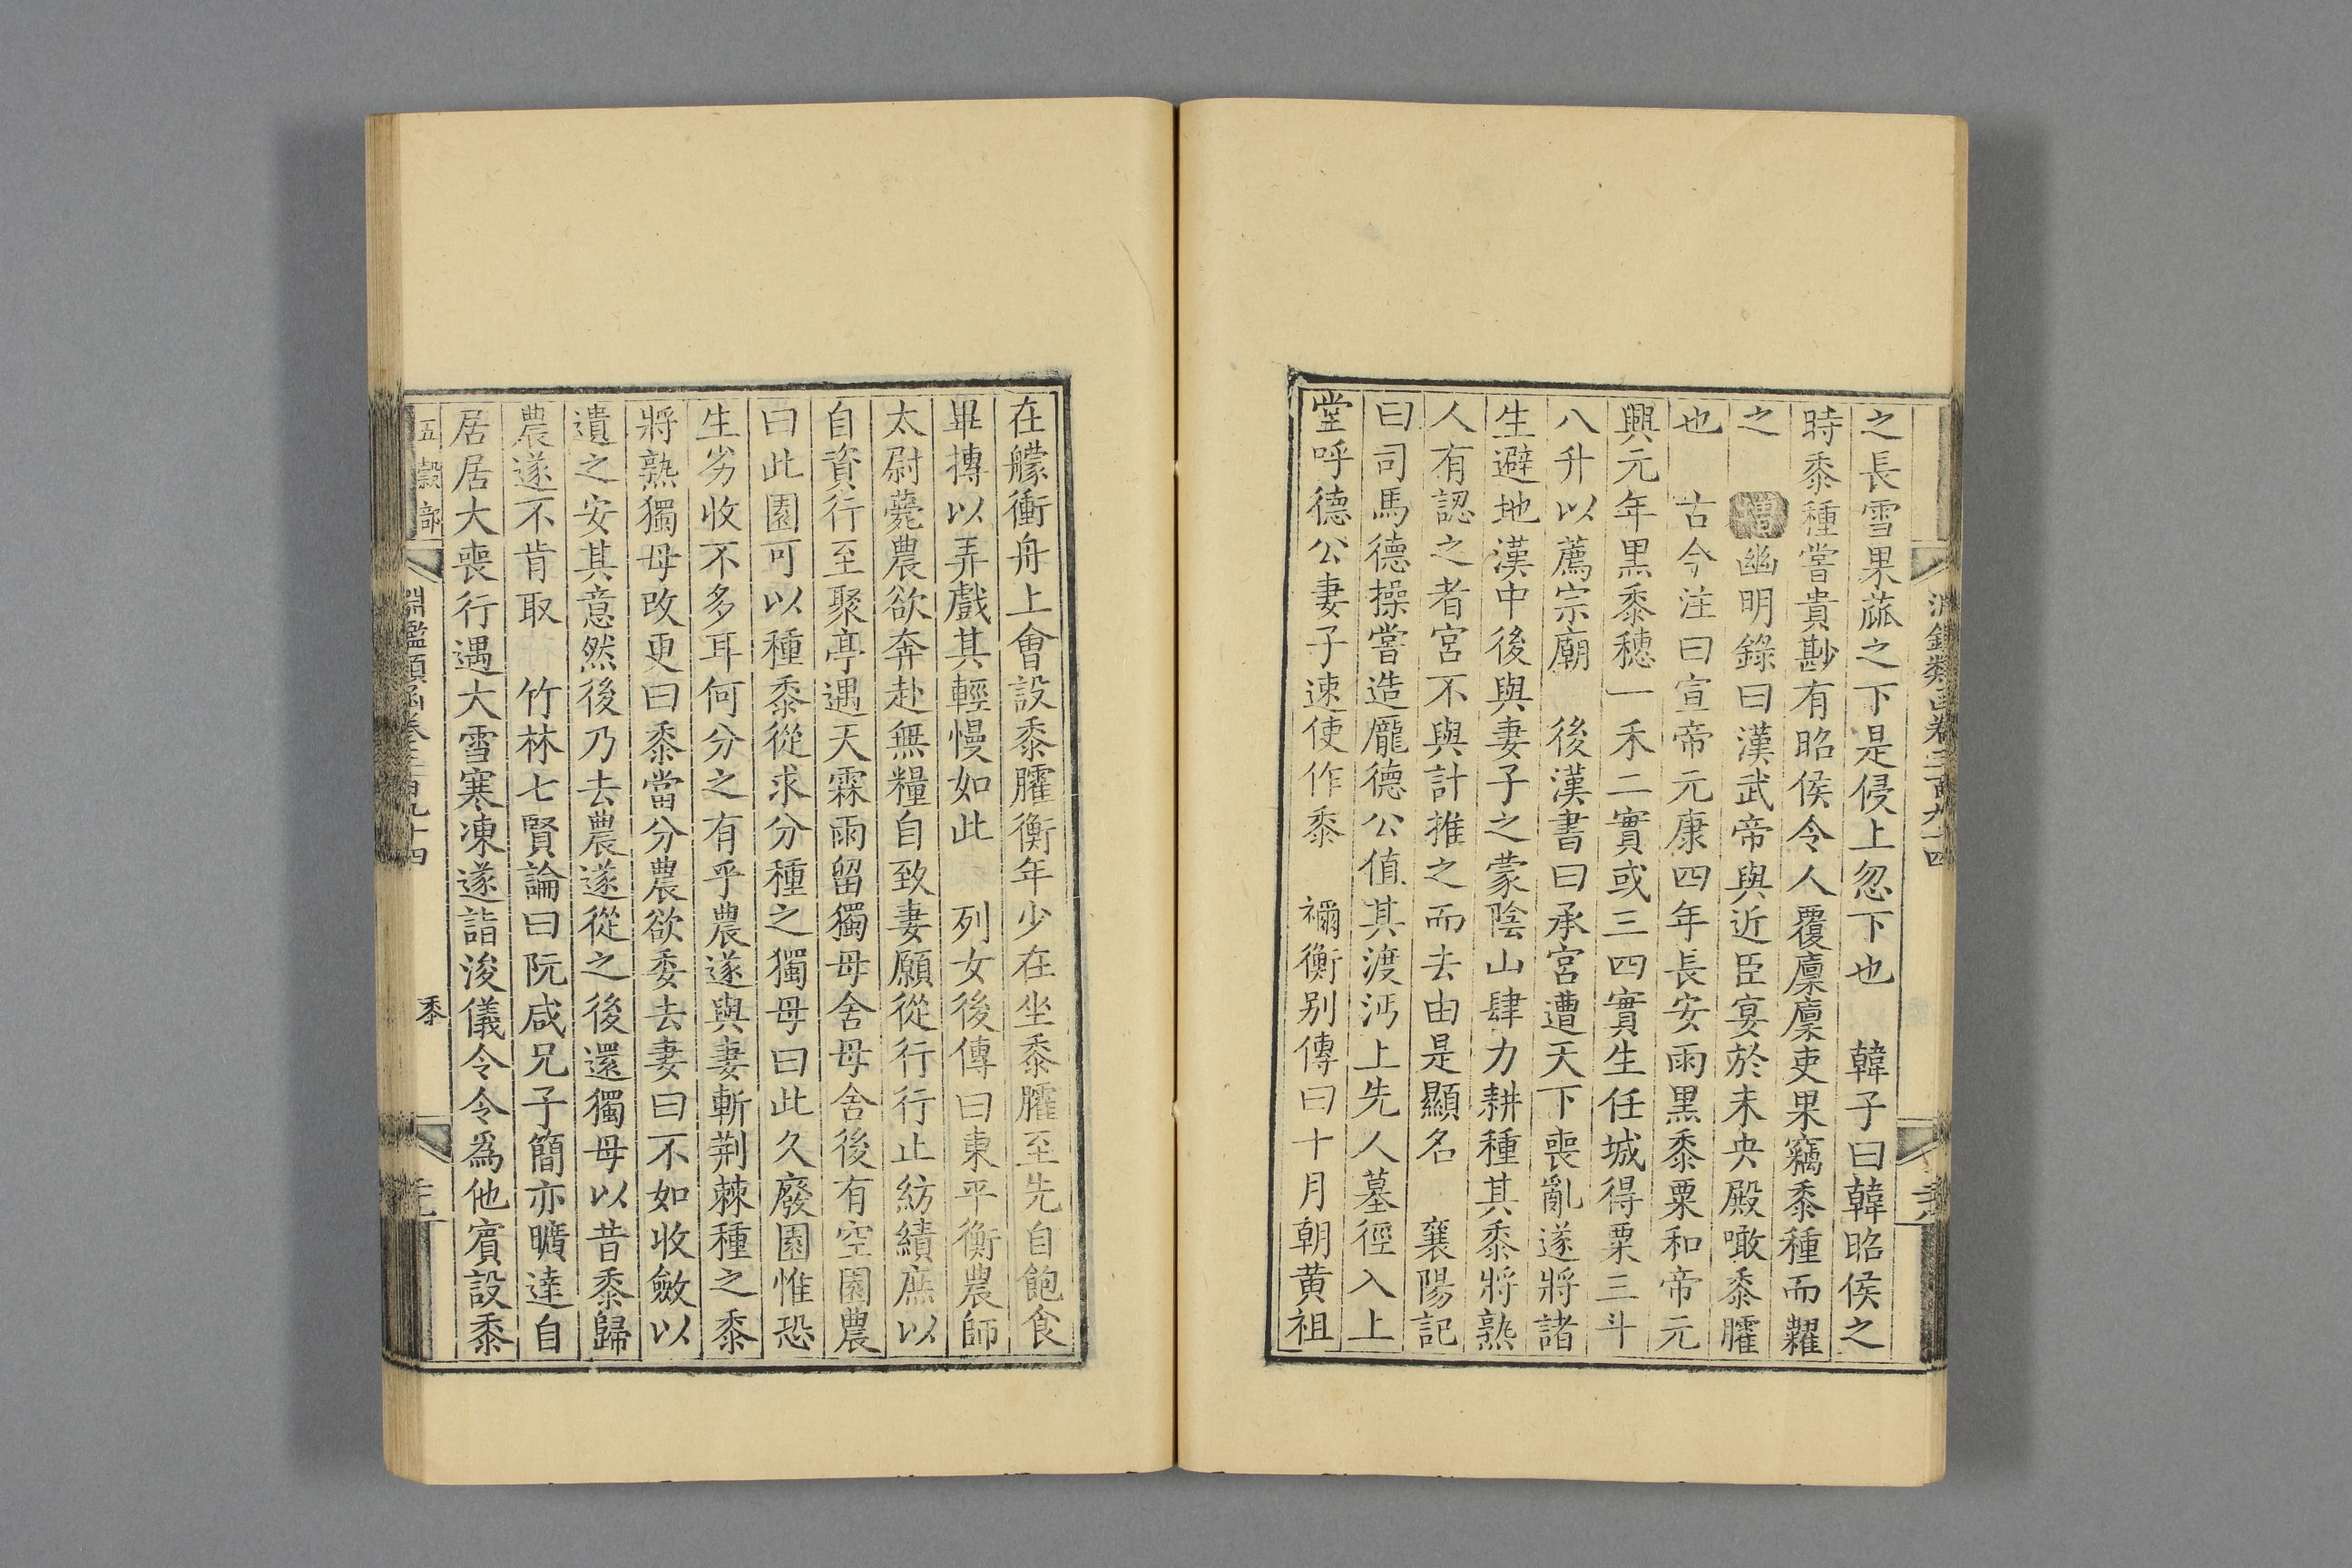 淵鑑類函卷三百九十四
之長雪果蓏之下是侵上忽下也　韓子曰韓昭侯之
時黍種嘗貴尠有昭侯令人覆廩廩吏果竊黍種而糶
之　增幽明錄曰漢武帝與近臣宴於未央殿噉黍臛
也　古今注曰宣帝元康四年長安雨黑黍粟和帝元
興元年黑黍穗一禾二實或三四實生任城得粟三斗
八升以薦宗廟　後漢書曰承宮遭天下喪亂遂將諸
生避地漢中後與妻子之蒙陰山肆力耕種其黍將熟
人有認之者宮不與計推之而去由是顯名　襄陽記
曰司馬德操嘗造龐德公值其渡沔上先人墓徑入上
堂呼德公妻子速使作黍　禰衡别傳曰十月朝黄祖
在艨衝舟上會設黍臛衡年少在坐黍臛至先自飽食
畢摶以弄戲其輕慢如此　列女後傳曰東平衡農師
太尉薨農欲奔赴無糧自致妻願從行行止紡績庶以
自資行至聚亭遇天霖雨留獨母舍母舍後有空園農
曰此園可以種黍從求分種之獨母曰此久廢園惟恐
生劣收不多耳何分之有乎農遂與妻斬荆棘種之黍
將熟獨母改更曰黍當分農欲委去妻曰不如收斂以
遺之安其意然後乃去農遂從之後還獨母以昔黍歸
農遂不肯取　竹林七賢論曰阮咸兄子簡亦曠達自
居居大喪行遇大雪寒凍遂詣浚儀令令爲他賓設黍
五穀部　淵鑑類函卷三百九十四　黍